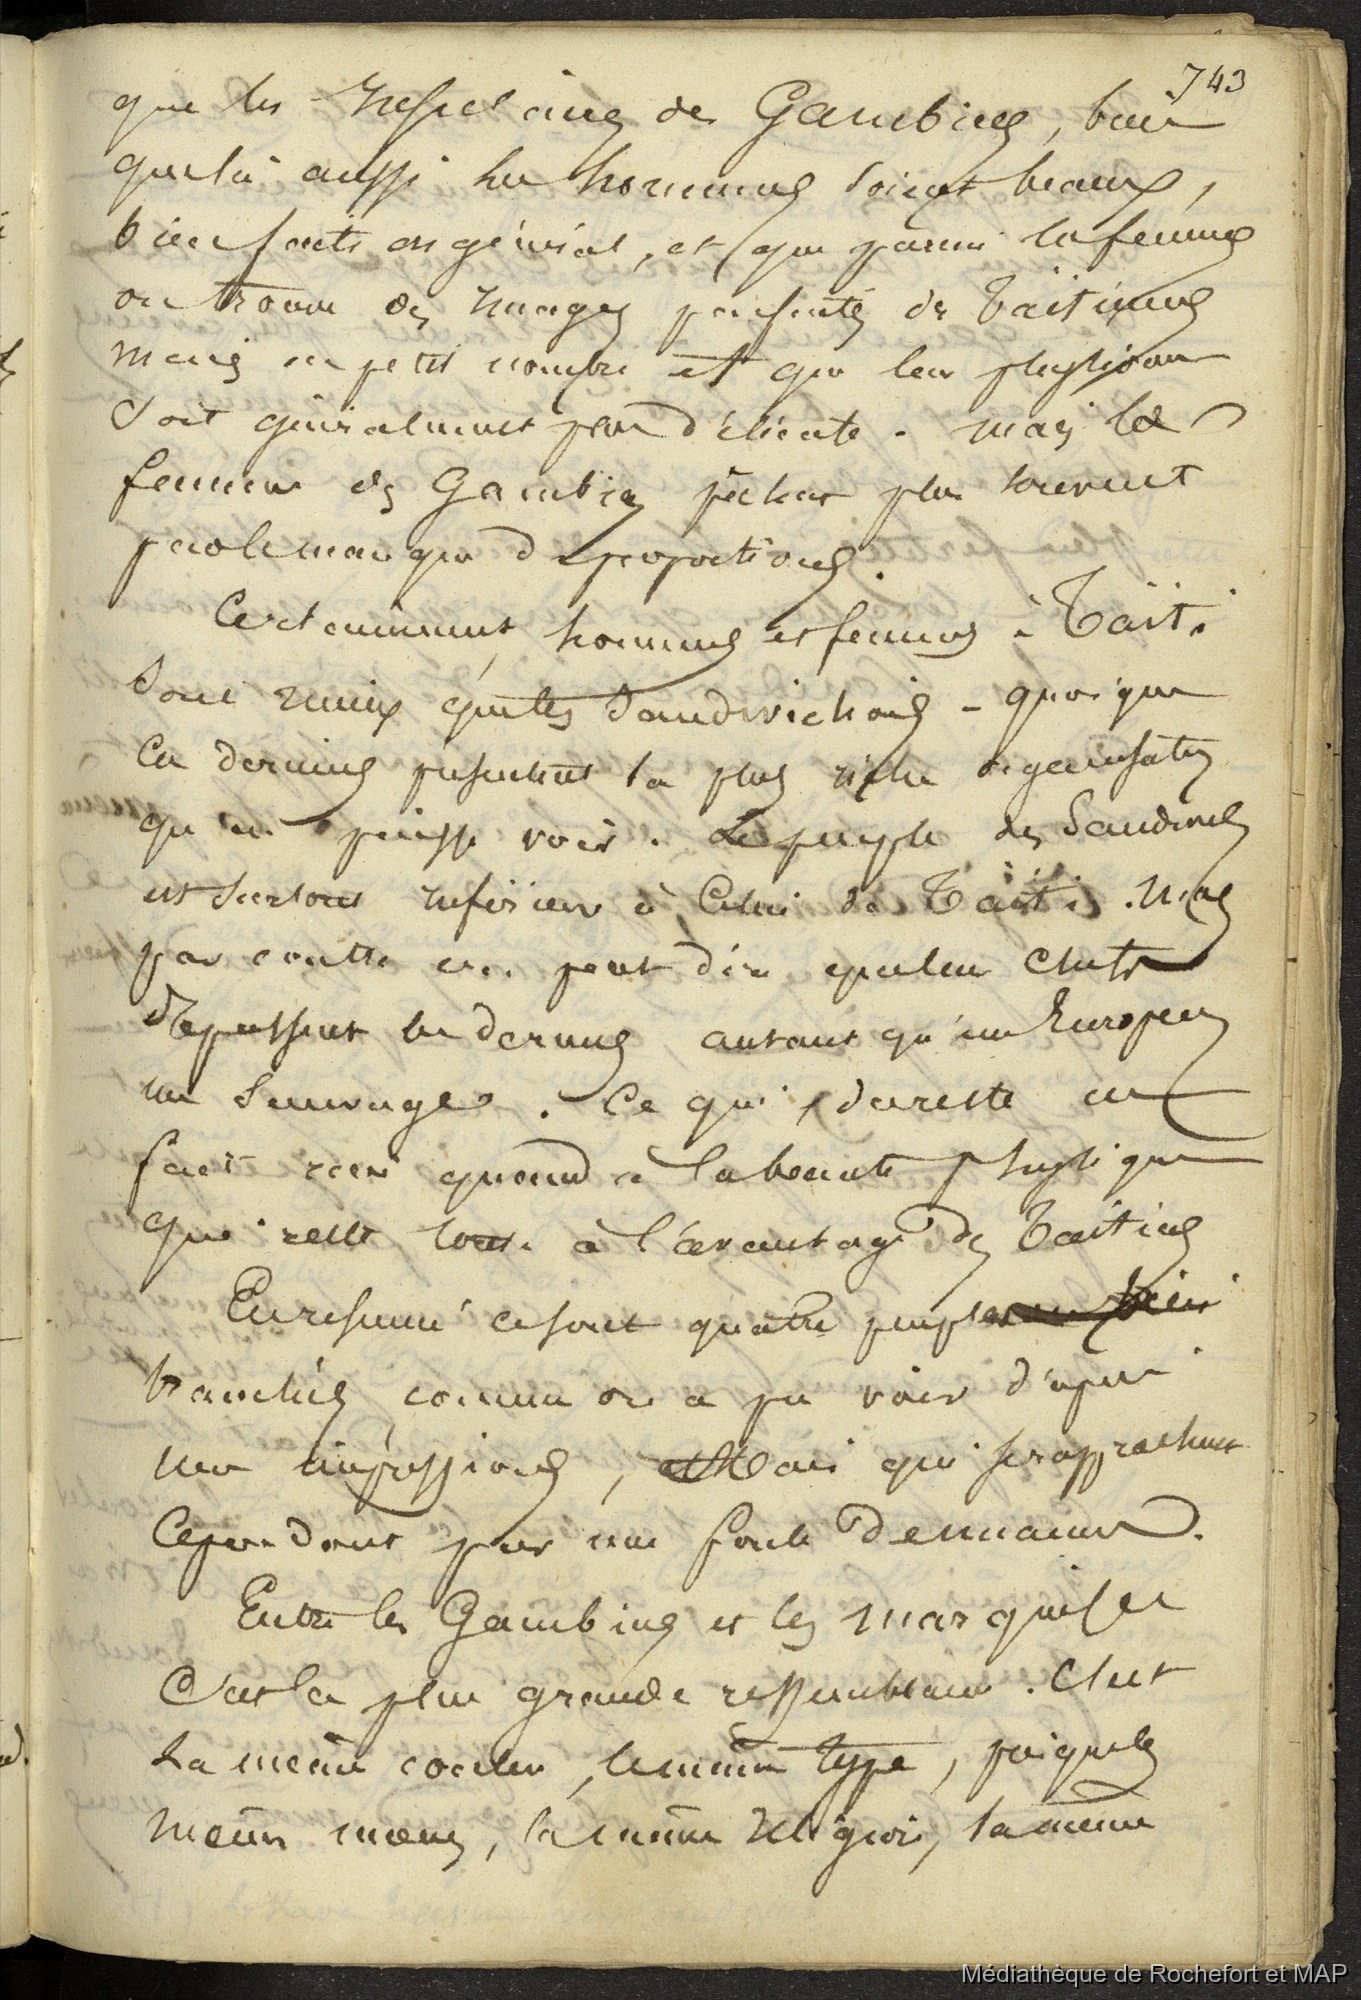 743
que les insulaires des Gambiers, bien
que là aussi les hommes soient beaux,
bien faits en général, et que parmi les femmes
on trouve des images parfaites de Taïtiennes
mais en petit nombre et que leur physionomie
soit généralement peu délicate. mais les
femmes des Gambiers pèchent plus souvent
par le manque de proportions.
Certainement, hommes et femmes à Taïti
sont mieux que les Sandwichois - quoique
ces derniers présentent la plus riche organisation
qu'on puisse voir. Le peuple des Sandwich
est surtout inférieur à celui de Taïti. Mais
par contre on peut dire que leurs chefs
dépassent les derniers autant qu'un Européen
un Sauvage. Ce qui, du reste ne
fait rien quand à la beauté physique
qui reste toute à l'avantage des Taïtiens
En résumé ce sont quatre peuples bien
tranchés comme on a pu voir d'après
mes impressions, Mais qui se rapprochent
Cependant par une foule de nuances.
Entre les Gambiers et les Marquises
C'est la plus grande ressemblance. C'est
la même couleur, le même type, presque les
mêmes moeurs, la même Religion, la même
Médiathèque de Rochefort et MAP